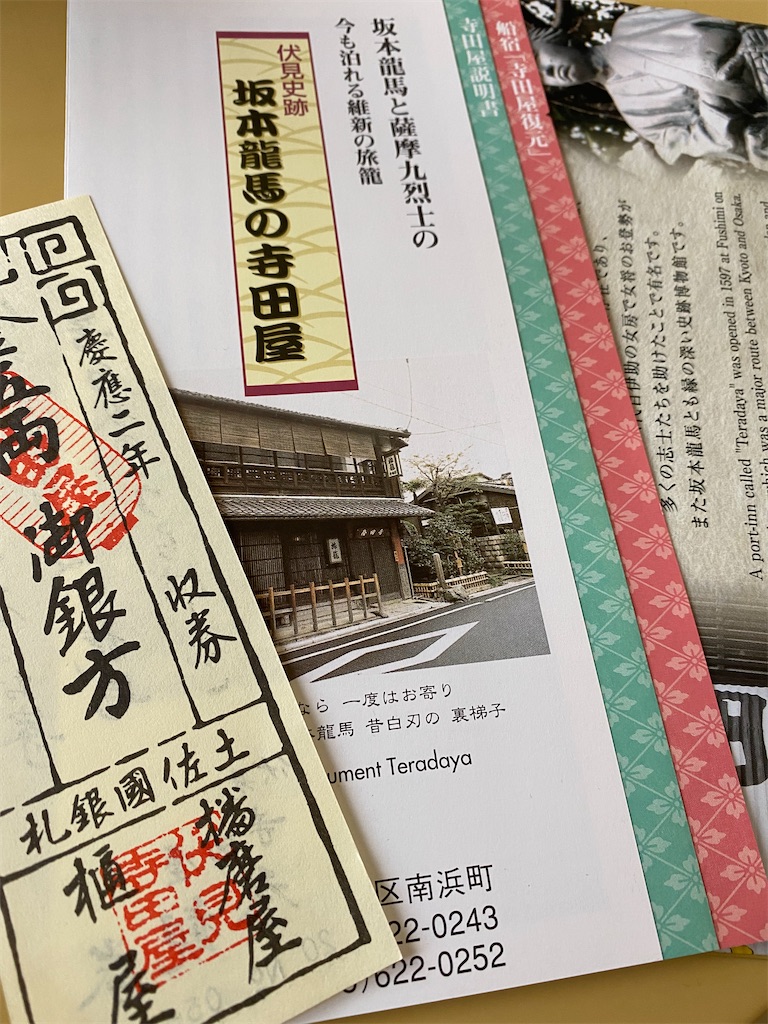 坂本龍馬と薩摩九烈士の
今も泊れる維新の旅籠
伏見史跡
坂本龍馬の寺田屋
寺田屋説明書
船宿「寺田屋復元」
なら 一度はお寄り
龍馬 昔白刃の 裏梯子
ument Teradaya
区南浜町
22-0243
)622-0252
慶應二年
収券
五両
御銀方
土佐國銀札
播磨屋
櫃屋
伏見
寺田屋
であり、
代目伊助の女房で女将のお登勢が
多くの志士たちを助けたことで有名です。
また坂本龍馬とも縁の深い史跡博物館です。
A port-inn called "Teradaya" was opened in 1597 at Fushimi on
which was a major route between Kyoto and Osaka.
and